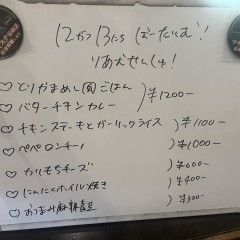 12がつ13にち ばーたいむ!
りあえせんしゅ!
♡ とりやまめし風ごはん
♡ バターチキンカレー
)¥1200-
♡ チキンステーキとガーリックライス )¥1100-
♡ ペペロンチーノ )¥1000-
♡ カリもちチーズ )¥600-
♡ にんにくホイル焼き )¥400-
♡ おつまみ麻辣青豆 )¥300-